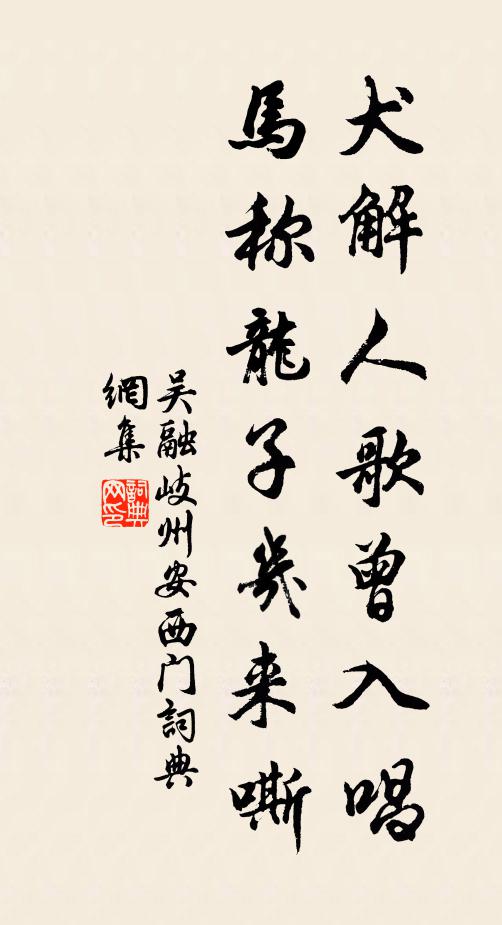 犬解人歌曾入唱
馬称龍子幾来嘶
吴融岐州安西门詞典
網集
詞典網印